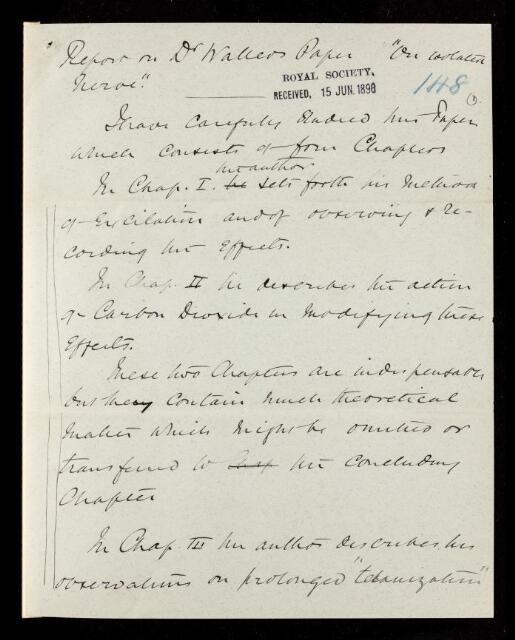 Report on Dr Waller's Paper "On isolated
Nerve".
ROYAL SOCIETY,
RECEIVED, 15 JUN. 1896
148
(1)
I have carefully studied this Paper
which consists of four Chapters
the author
In Chap. I. he sets forth his method
of Excitation and of observing & re-
cording the Effects.
In Chap. II he describes the action
of Carbon Dioxide in modifying these
Effects.
These two Chapters are indispensable
but they contain much theoretical
matter which might be omitted or
transferred to the concluding
Chapter
In Chap. III the author describes his
observations on prolonged "tetanization"